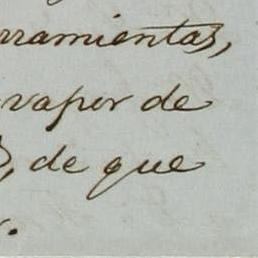 rramientas,
vapor de
, de que